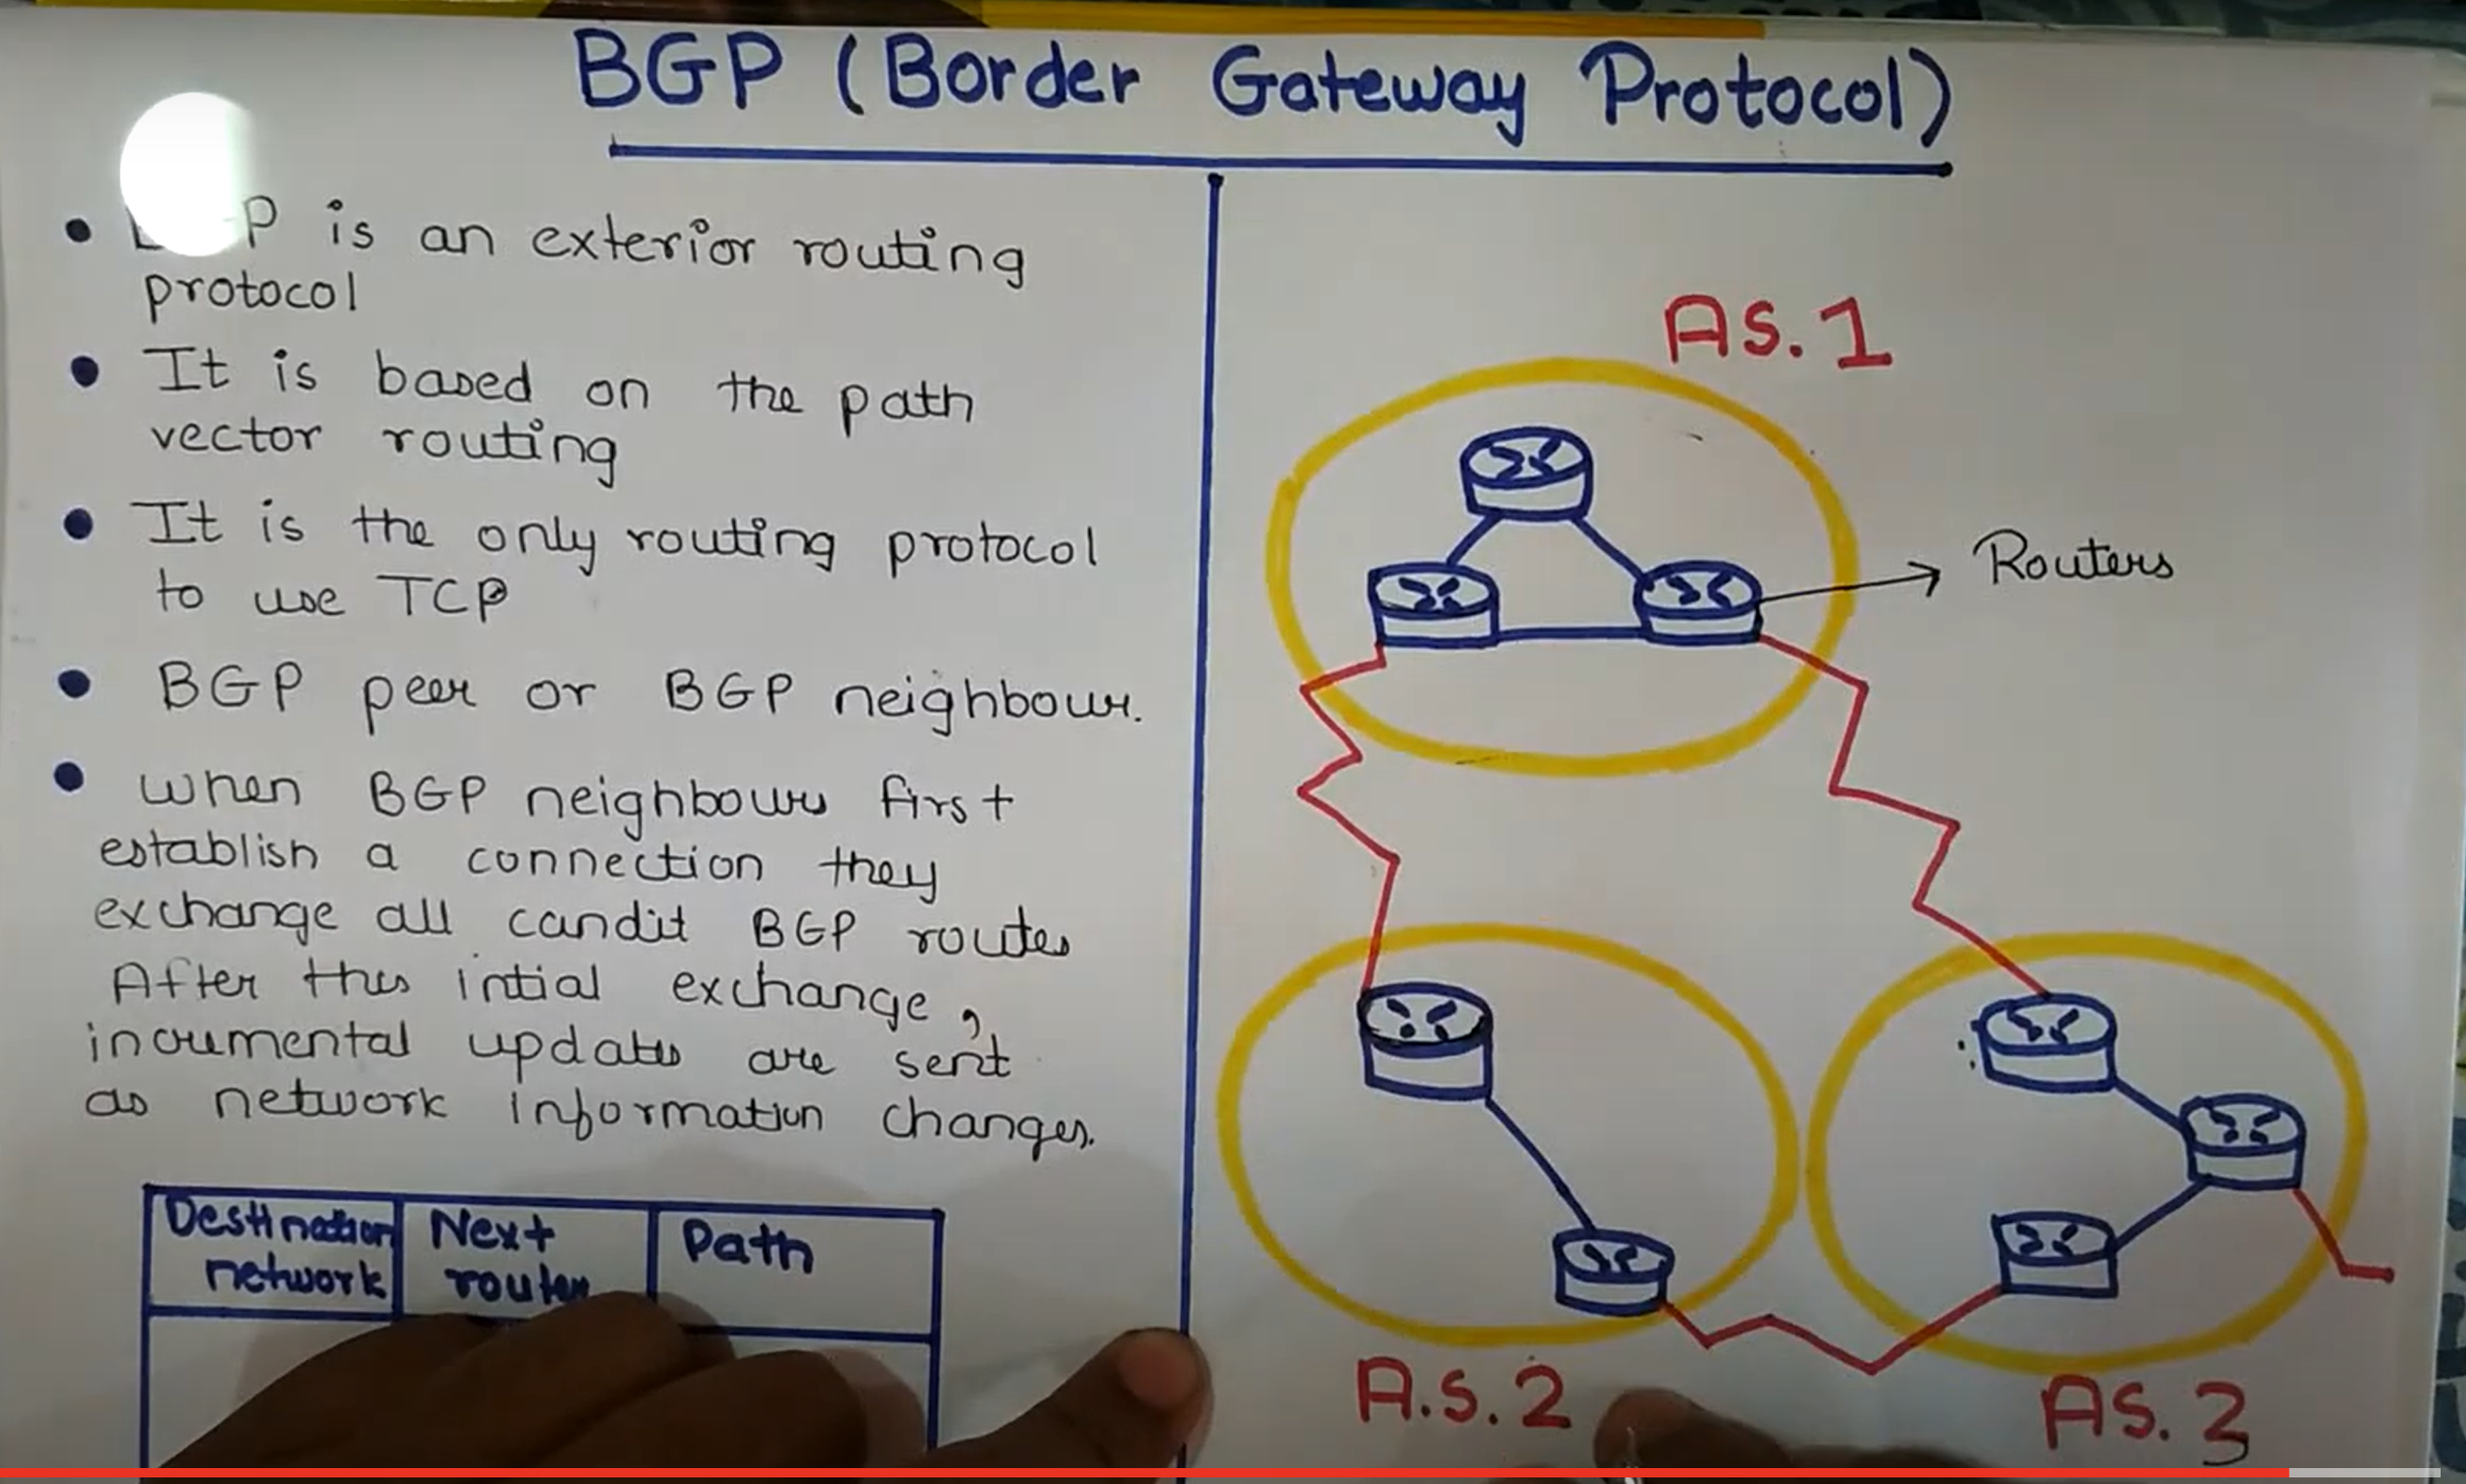 BGP (Border Gateway Protocol)
P is an exterior routing
protocol
It is based on the path
vector routing
It is the only routing protocol
to use TCP
BGP peer or BGP neighbour.
when BGP neighbours first
establish a connection they
exchange all candit BGP routes
After this intial exchange,
incremental updates are sent
as network information changes.
Destination
network
Next
router
Path
AS.1
Routers
A.S.2
AS.3